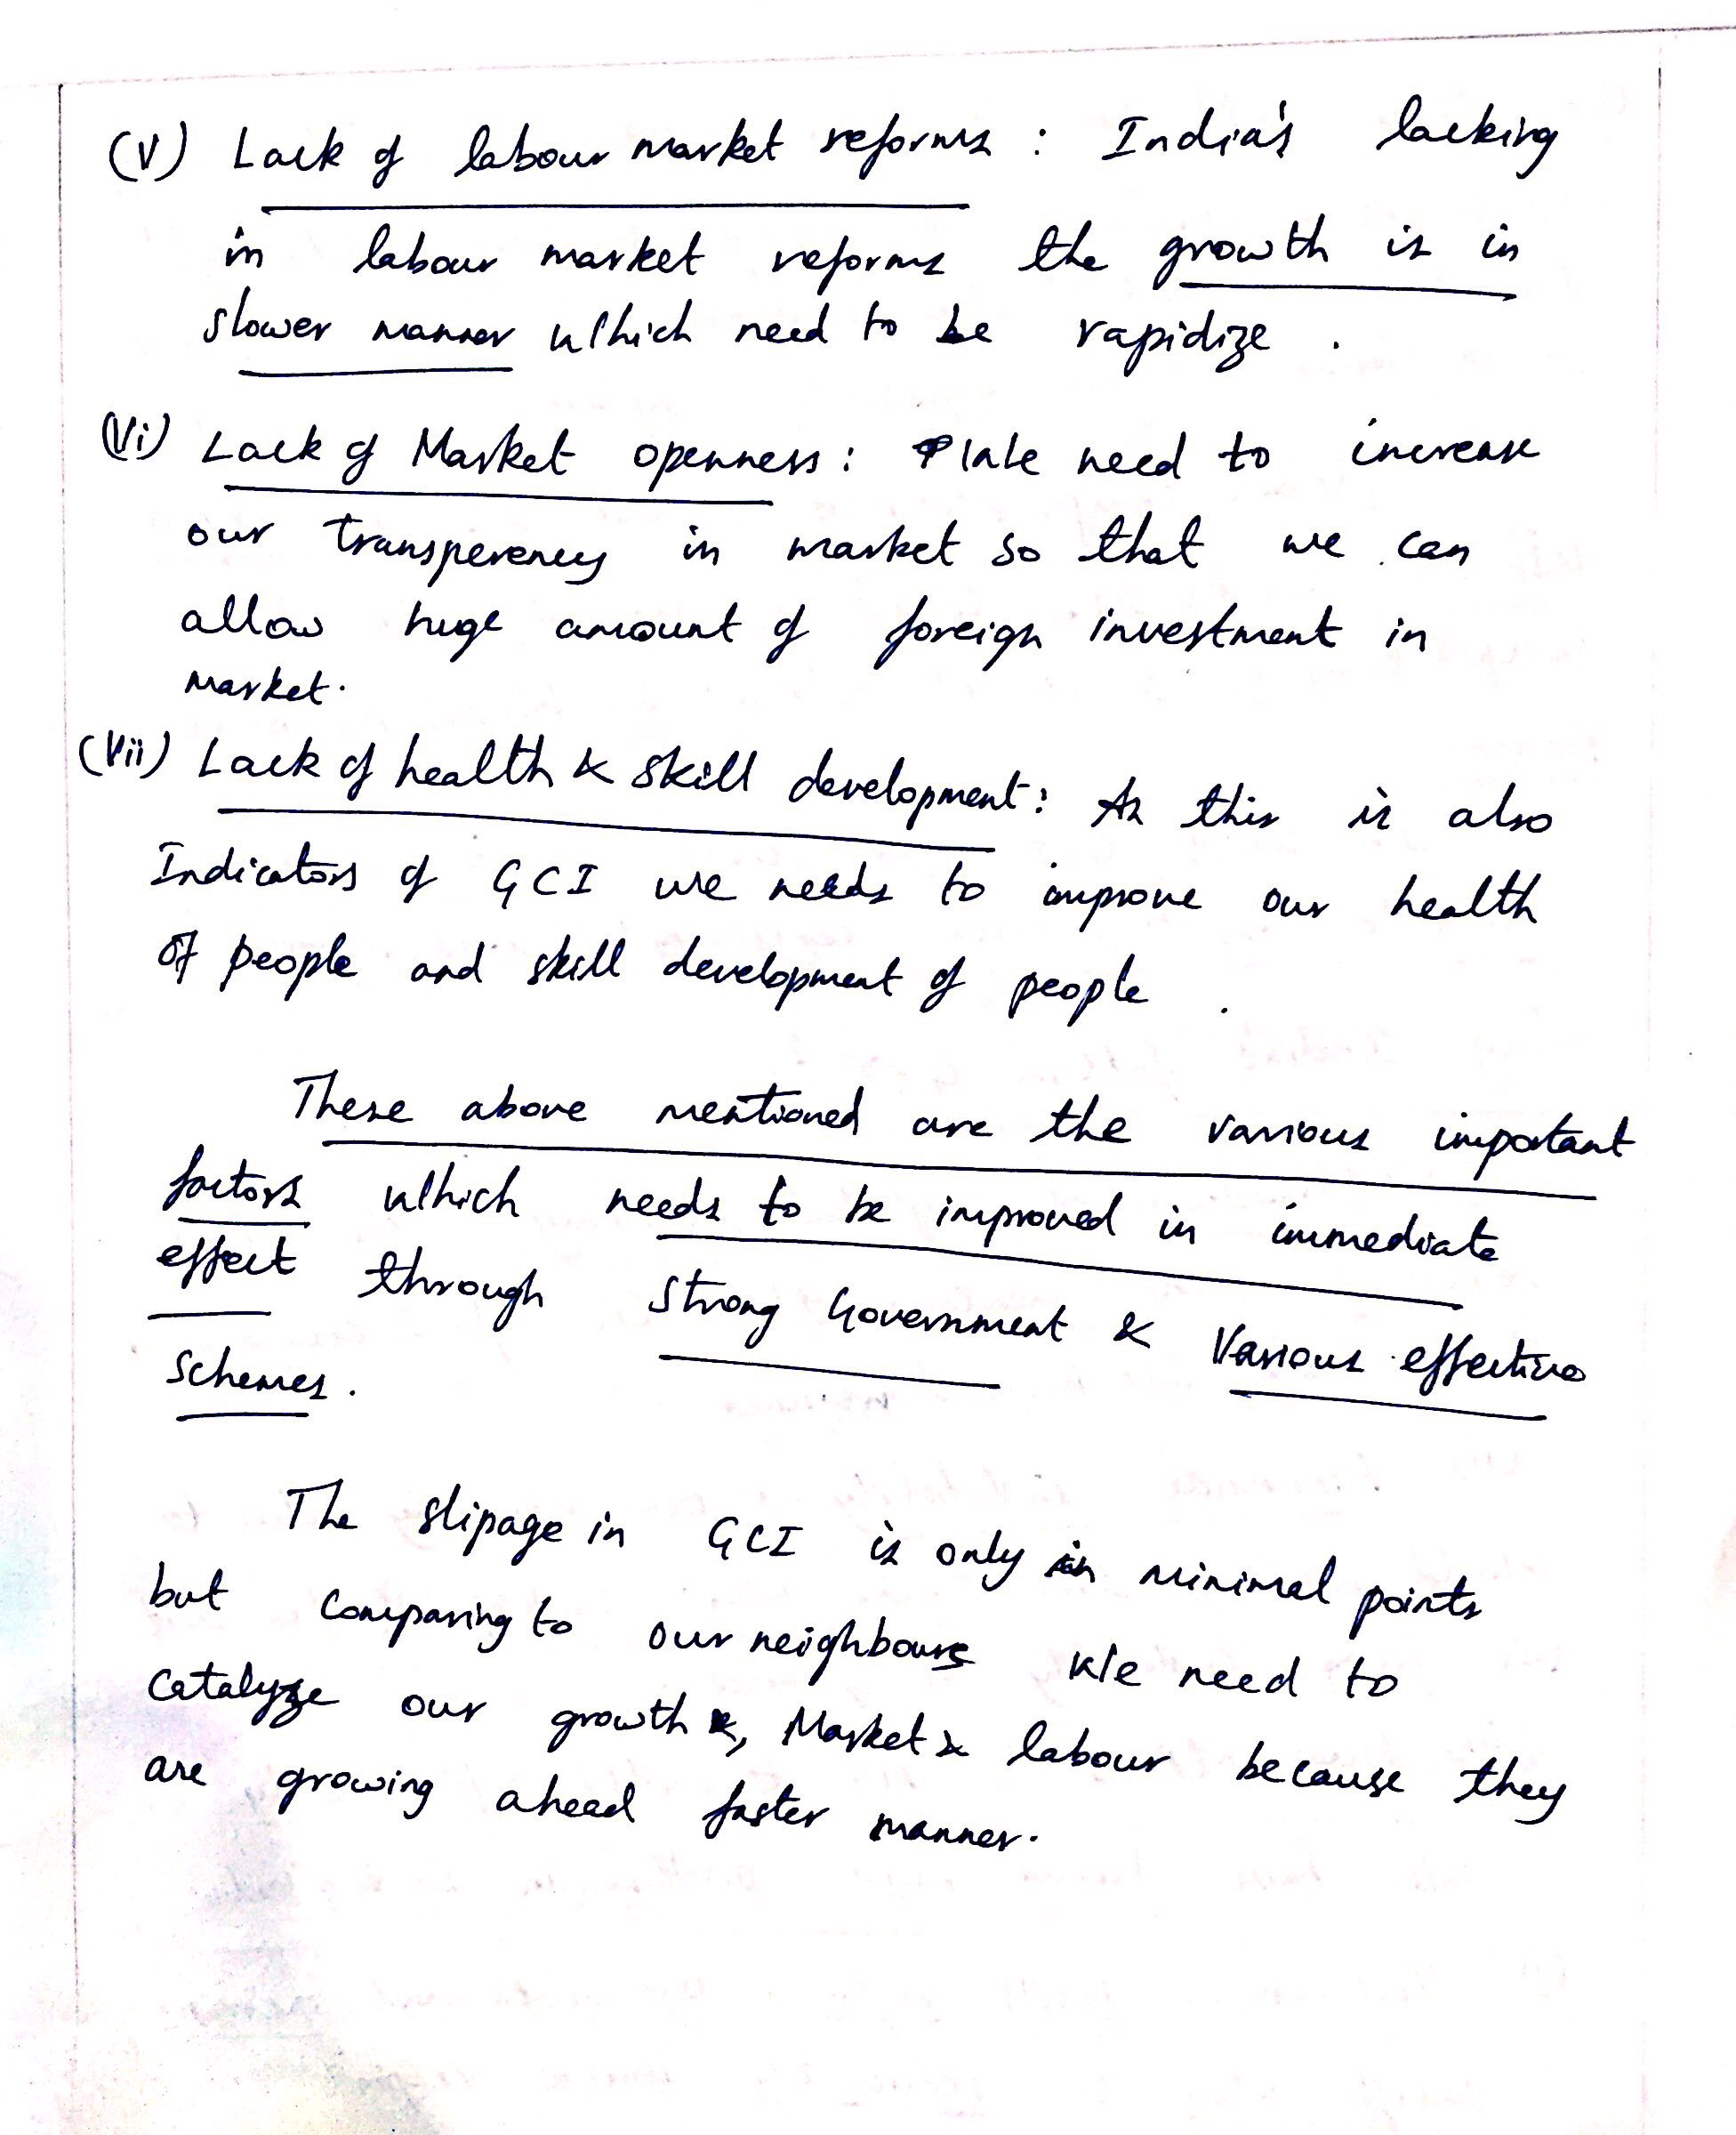 (V) Lack of labour market reforms : India's lacking
in labour market reforms the growth is in
slower manner which need to be rapidize .
(Vi) Lack of Market openness : We need to increase
our transperency in market so that we can
allow huge amount of foreign investment in
market.
(Vii) Lack of health & skill development : As this is also
Indicators of GCI we needs to improve our health
of people and skill development of people .
These above mentioned are the various important
factors which needs to be improved in immediate
effect through strong Government & Various effective
schemes .
The slipage in GCI is only in minimal points
but comparing to our neighbours we need to
catalyze our growth , Market & labour because they
are growing ahead faster manner.